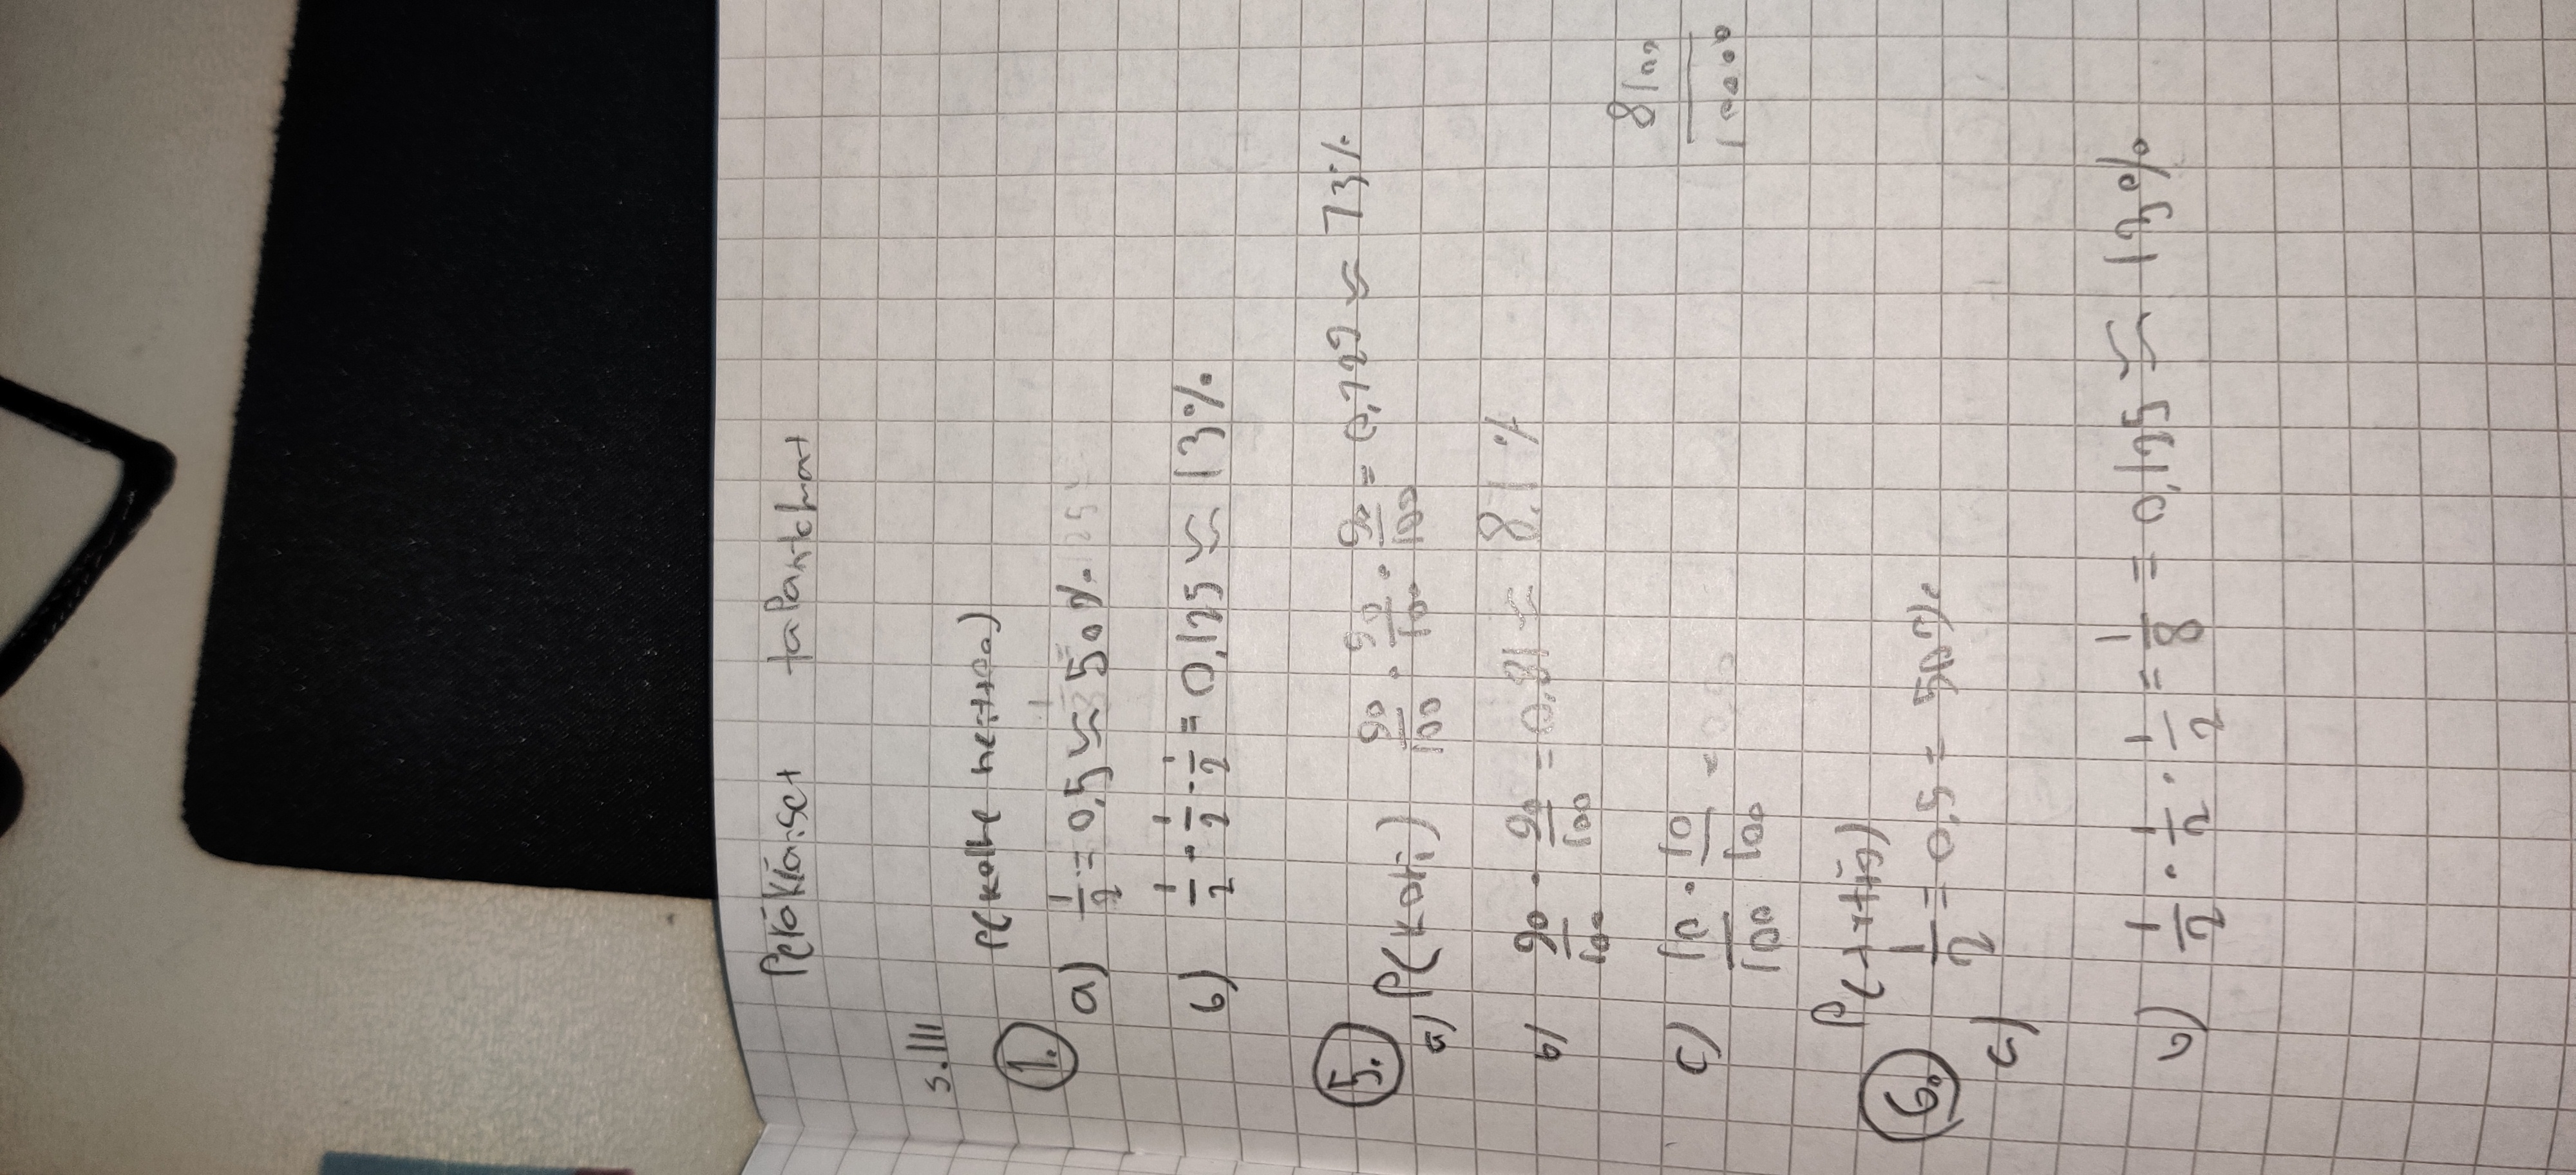 Peräkkäiset tapahtumat
s.111
1. P(kolme heittoa)
a) 1/2 = 0,5 ≈ 50%
b) 1/2 · 1/2 · 1/2 = 0,125 ≈ 13%
5. a) P(koti) 90/100 · 90/100 · 90/100 = 0,722 ≈ 73%
b) 90/100 · 90/100 = 0,81 ≈ 8,1%
8100/10000
c) 10/100 · 10/100 =
6. P(tyttö)
a) 1/2 = 0,5 = 50%
b) 1/2 · 1/2 · 1/2 = 1/8 = 0,125 ≈ 13%